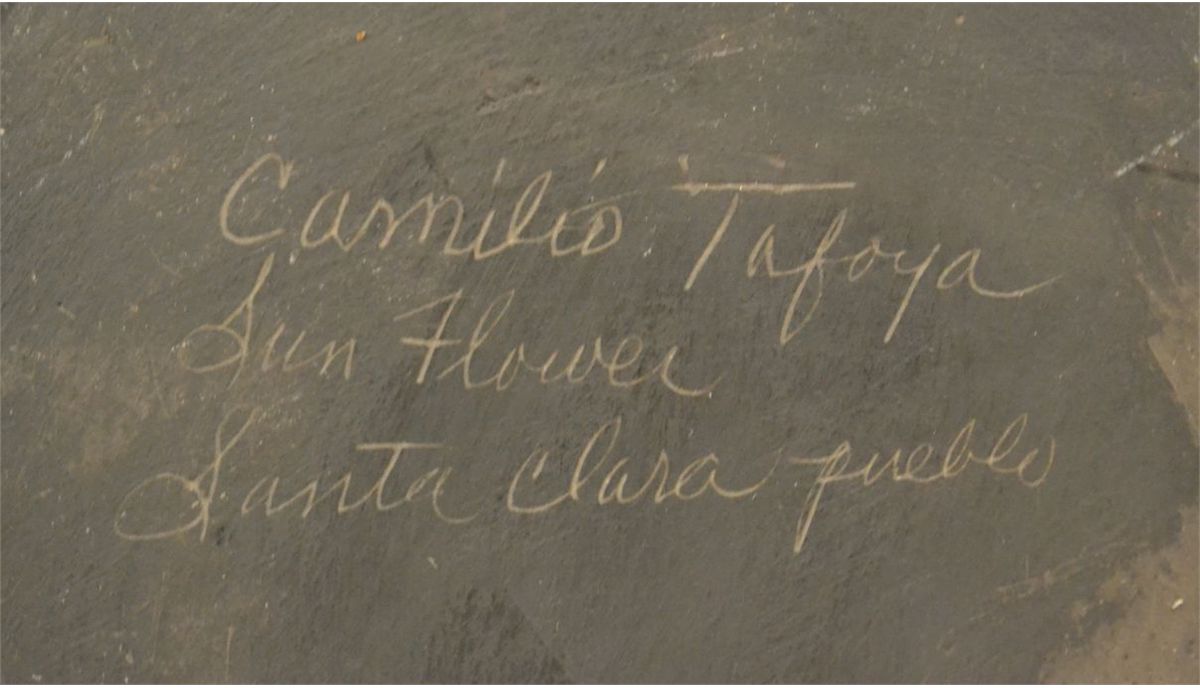 Camilio Tafoya
Sun Flower
Santa Clara pueblo